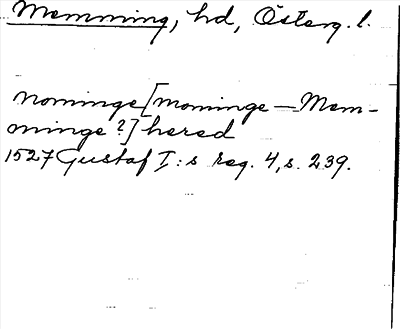 Memming, hd, Österg. l.
nominge [mominge — Mem-
minge?] hered
1527 Gustaf I:s reg. 4, s. 239.